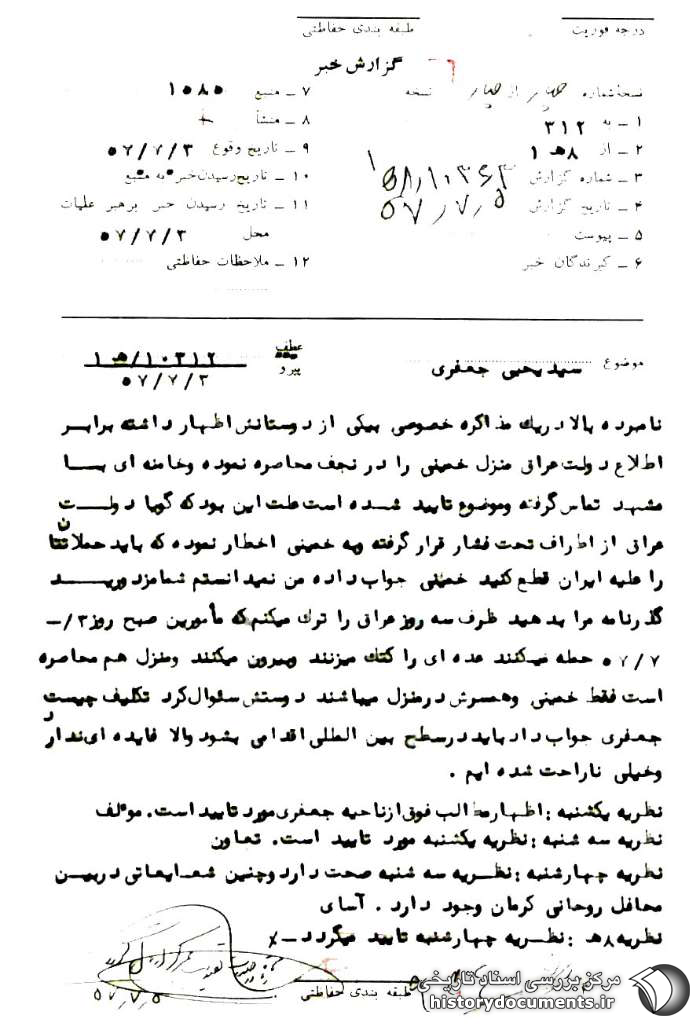 درجه فوریت
طبقه بندی حفاظتی
گزارش خبر
نسخه شماره چهار از چهار نسخه
۱ ـ به ۳۱۲
۲ ـ از ۸ هـ ۱
۳ ـ شماره گزارش
۴ ـ تاریخ گزارش ۵۷/۷/۵
۵ ـ پیوست
۶ ـ گیرندگان خبر
۷ ـ منبع ۱۰۸۵
۸ ـ منشأ
۹ ـ تاریخ وقوع ۵۷/۷/۳
۱۰ ـ تاریخ رسیدن خبر به منبع
۱۱ ـ تاریخ رسیدن خبر برهبر عملیات
محل ۵۷/۷/۳
۱۲ ـ ملاحظات حفاظتی
موضوع سید یحیی جعفری
عطف
پیرو
۱۰۳۱۲/هـ ۱
۵۷/۷/۳
نامبرده بالا در یک مذاکره خصوصی بیکی از دوستانش اظهار داشته برابر
اطلاع دولت عراق منزل خمینی را در نجف محاصره نموده وخامنه ای بـا
مشهد تماس گرفته وموضوع تایید شده است علت این بود که گویا دولـت
عراق از اطراف تحت فشار قرار گرفته وبه خمینی اخطار نموده که باید حملاتتان
را علیه ایران قطع کنید خمینی جواب داده من نمیدانستم شما مزدوریـد
گذرنامه مرا بدهید ظرف سه روز عراق را ترک میکنم که مأمورین صبح روز ۳/-
۵۷/۷ حمله میکنند عده ای را کتک میزنند وبیرون میکنند ومنزل هم محاصره
است فقط خمینی وهمسرش در منزل میباشند دوستش سئوال کرد تکلیف چیست
جعفری جواب داد باید در سطح بین المللی اقدامی بشود والا فایده ای ندارد
وخیلی ناراحت شده ایم .
نظریه یکشنبه : اظهار مطالب فوق از ناحیه جعفری مورد تایید است. موئلف
نظریه سه شنبه : نظریه یکشنبه مورد تایید است. تعاون
نظریه چهارشنبه : نظـریه سه شنبه صحت دارد وچنین شـایعاتی در بیـن
محافل روحانی کرمان وجود دارد . آسای
نظریه ۸هـ : نظـریه چهارشنبه تایید میگردد -
۵۷/۷/۵
طبقه بندی حفاظتی
مرکز بررسی اسناد تاریخی
historydocuments.ir